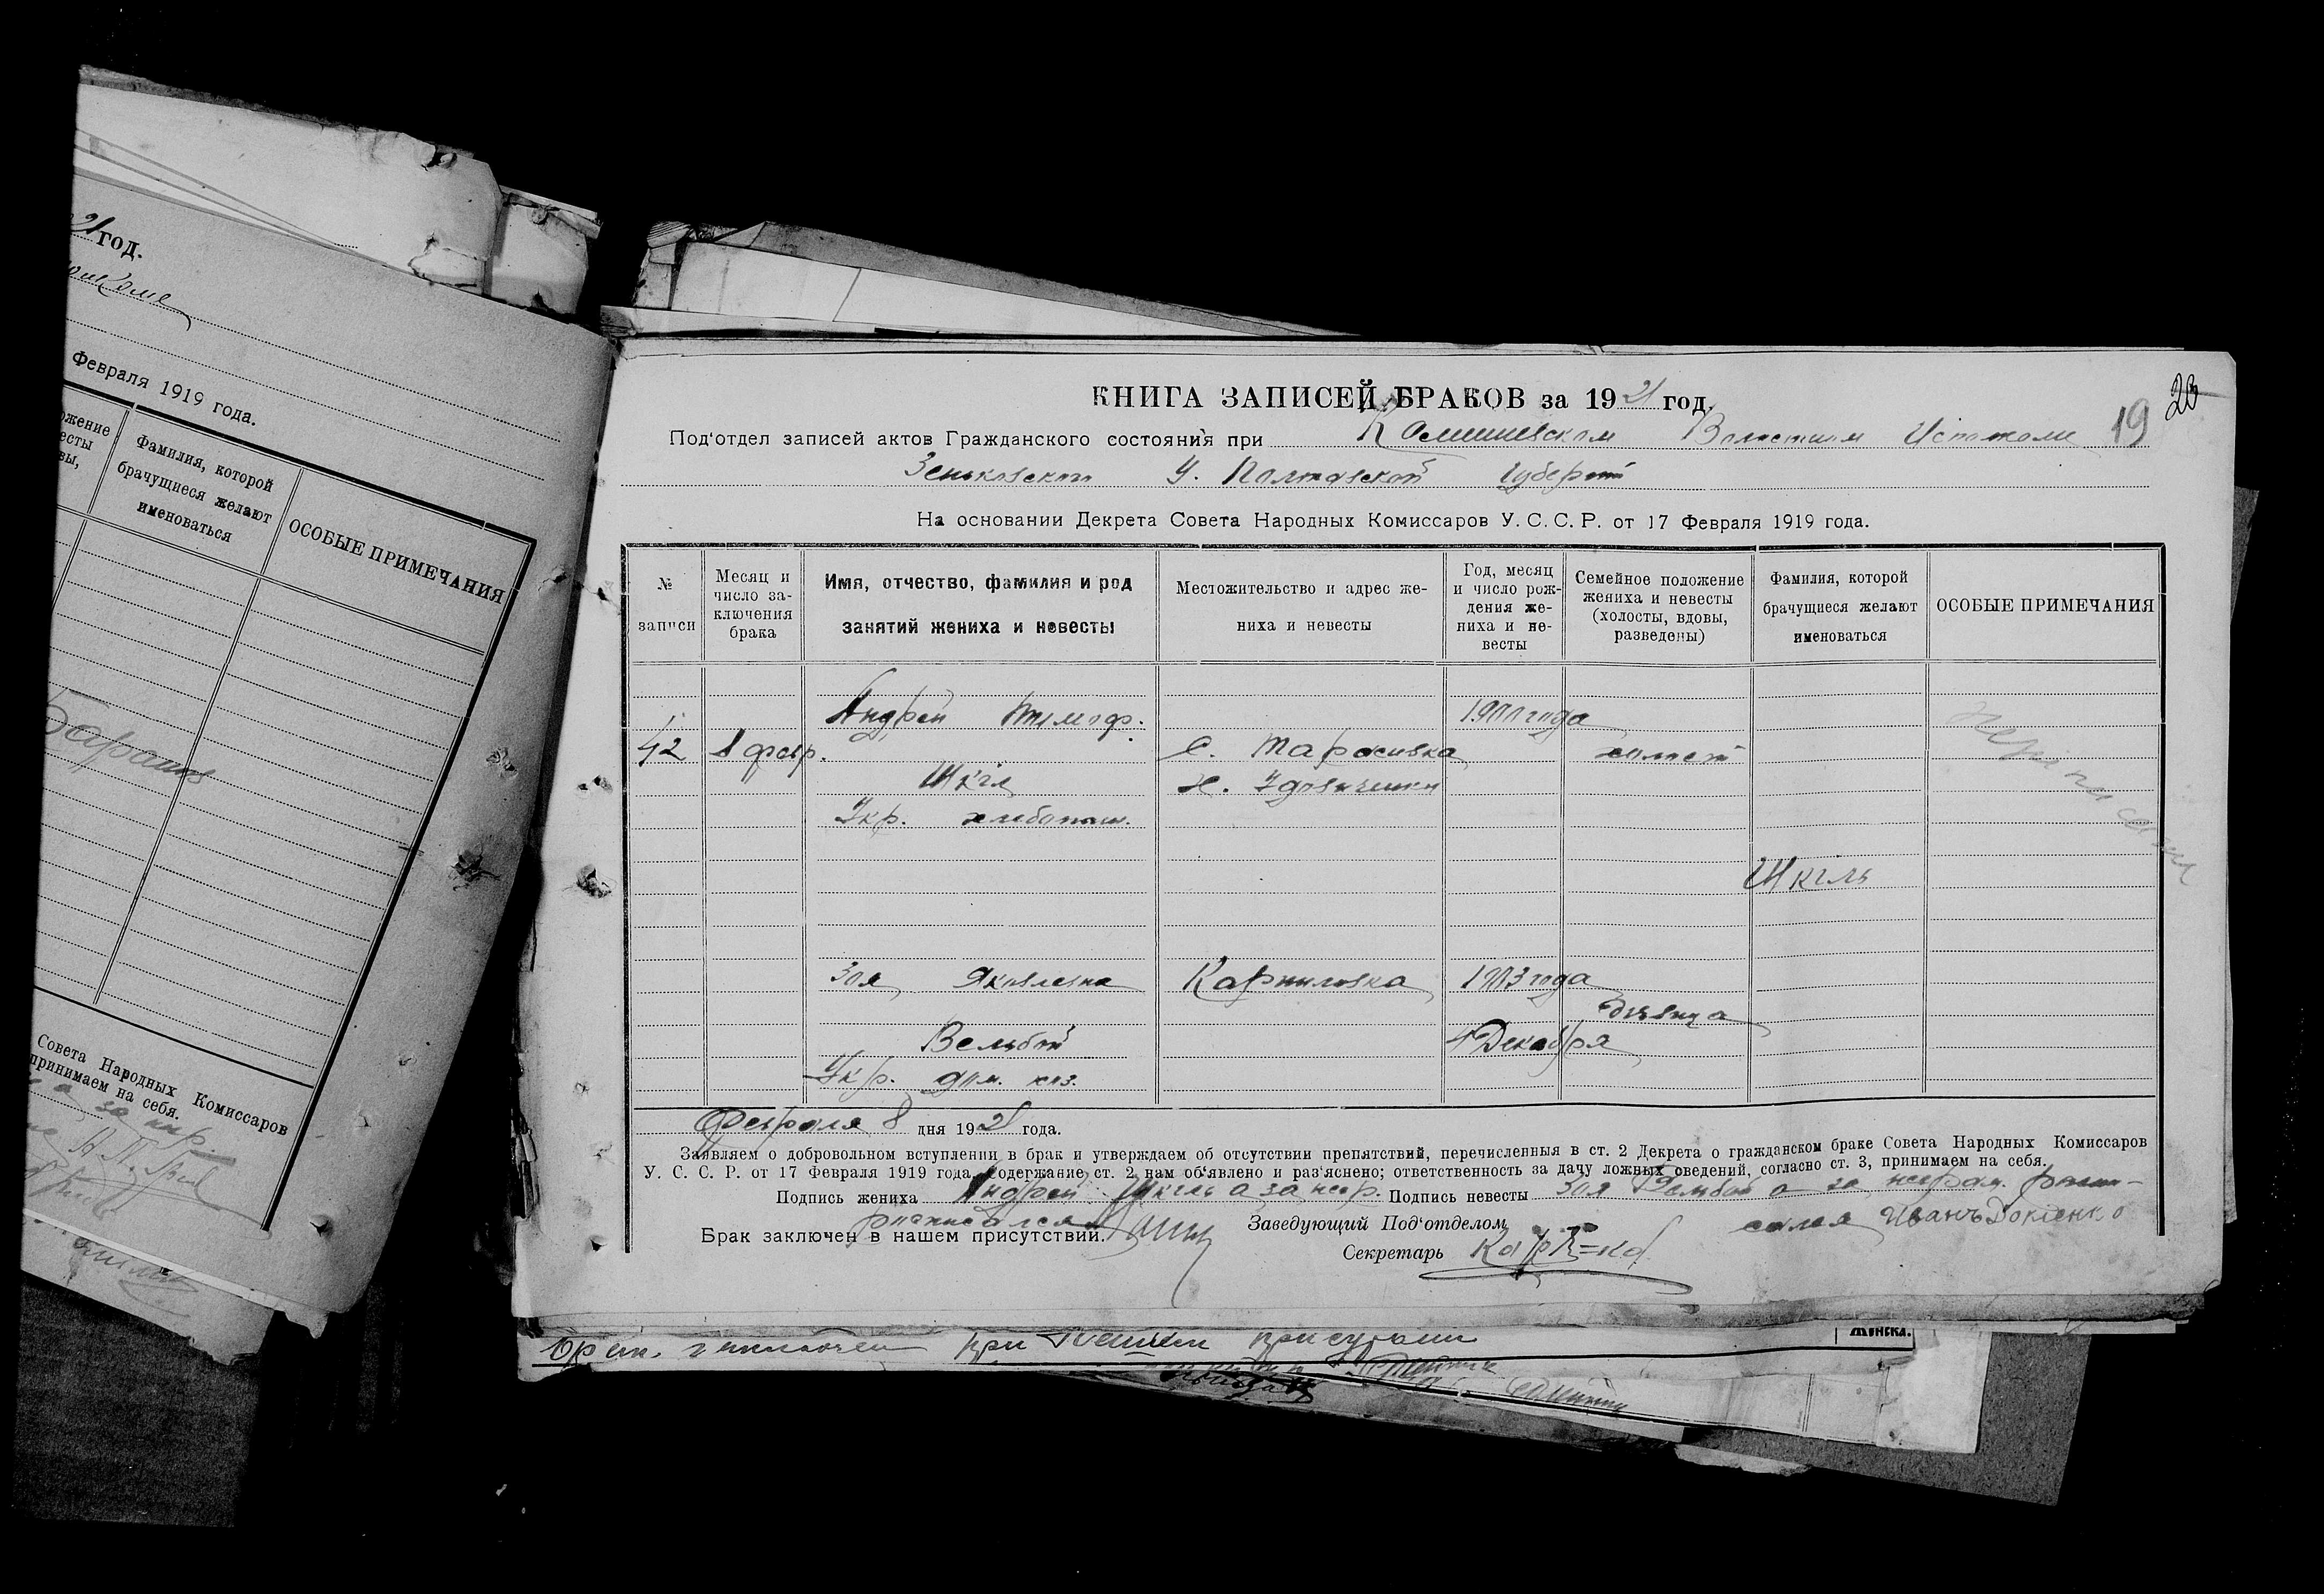 21 год.
Февраля 1919 года.
Фамилия, которой
брачущиеся желают
именоваться
ОСОБЫЕ ПРИМЕЧАНИЯ
Совета Народных Комиссаров
принимаем на себя.
КНИГА ЗАПИСЕЙ БРАКОВ за 1921 год.
20
19
Под‘отдел записей актов Гражданского состояния при
Зеньковского У. Полтавской Губернии
На основании Декрета Совета Народных Комиссаров У. С. С. Р. от 17 Февраля 1919 года.
№
записи
Месяц и
число за-
ключения
брака
Имя, отчество, фамилия и род
занятий жениха и невесты
Местожительство и адрес же-
ниха и невесты
Год, месяц
и число рож-
дения же-
ниха и не-
весты
Семейное положение
жениха и невесты
(холосты, вдовы,
разведены)
Фамилия, которой
брачущиеся желают
именоваться
ОСОБЫЕ ПРИМЕЧАНИЯ
Андрей Тимоф. 1900 года
42 8 февр. с. Тарасивка холост
Шкіл
Укр. хлебопаш.
Шкіль
Зоя Яковлевна 1903 года
девица
Вельбой 4 Декабря
Укр. дом. хоз.
Февраля 8 дня 1921 года.
Заявляем о добровольном вступлении в брак и утверждаем об отсутствии препятствий, перечисленныя в ст. 2 Декрета о гражданском браке Совета Народных Комиссаров
У. С. С. Р. от 17 Февраля 1919 года. Содержание ст. 2 нам об‘явлено и раз‘яснено; ответственность за дачу ложных сведений, согласно ст. 3, принимаем на себя.
Подпись жениха Андрей Шкіль а за негр. Подпись невесты Зоя Вельбой а за неграм. распи-
расписался
салея Иванъ Докіенко
Брак заключен в нашем присутствии.
Заведующий Под‘отделом
Секретарь